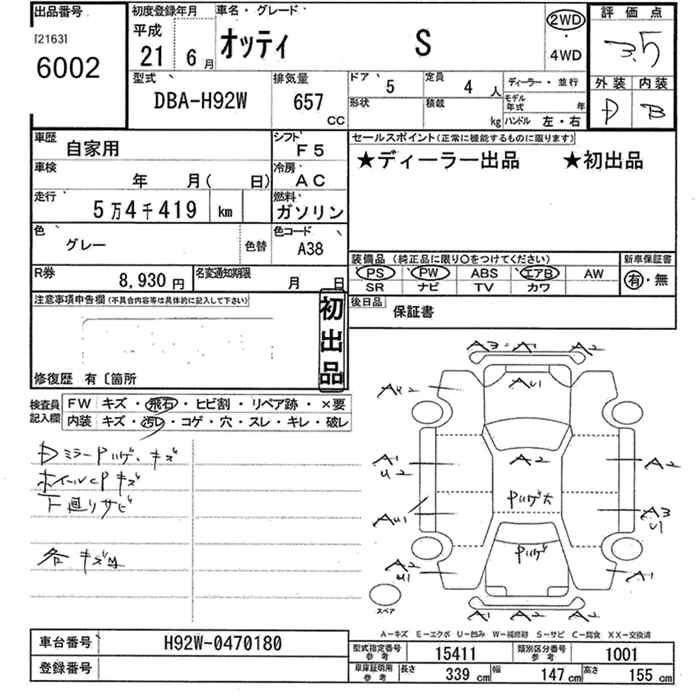 出品番号
[2163]
6002
初度登録年月
平成
21 6月
車名・グレード
オッティ S
2WD
・
4WD
評価点
3.5
外装 内装
D B
型式
DBA-H92W
排気量
657
cc
ドア 5
定員 4 人
形状
積載 kg
ディーラー・並行
モデル年式 年
ハンドル 左・右
車歴
自家用
シフト
F5
セールスポイント(正常に機能するものに限ります)
★ディーラー出品 ★初出品
車検
年 月( 日)
冷房
AC
走行
5万4千419 km
燃料
ガソリン
色
グレー
色替
色コード
A38
装備品(純正品に限り○をつけてください)
PS PW ABS エアB AW
SR ナビ TV カワ
新車保証書
有・無
R券
8,930円
名変通知期限
月 日
注意事項申告欄(不具合内容等は具体的に記入して下さい)
初出品
後日品
保証書
修復歴 有〔箇所
検査員記入欄
FW キズ・飛石・ヒビ割・リペア跡・×要
内装 キズ・汚レ・コゲ・穴・スレ・キレ・破レ
DミラーPハゲ、キズ
ホイールCPキズ
下廻リサビ
各キズ凹
A3・A1 A2
A42 AU1
A1 U2 A2 A2
Pハゲ大
AU1 A3 U1
Pハゲ
A2 U1 A1
A1 A2 A2
スペア
A-キズ E-エクボ U-凹み W-補修跡 S-サビ C-腐食 XX-交換済
車台番号
H92W-0470180
登録番号
型式指定番号 参考
15411
類別区分番号 参考
1001
車庫証明用 参考
長さ 339 cm 幅 147 cm 高さ 155 cm